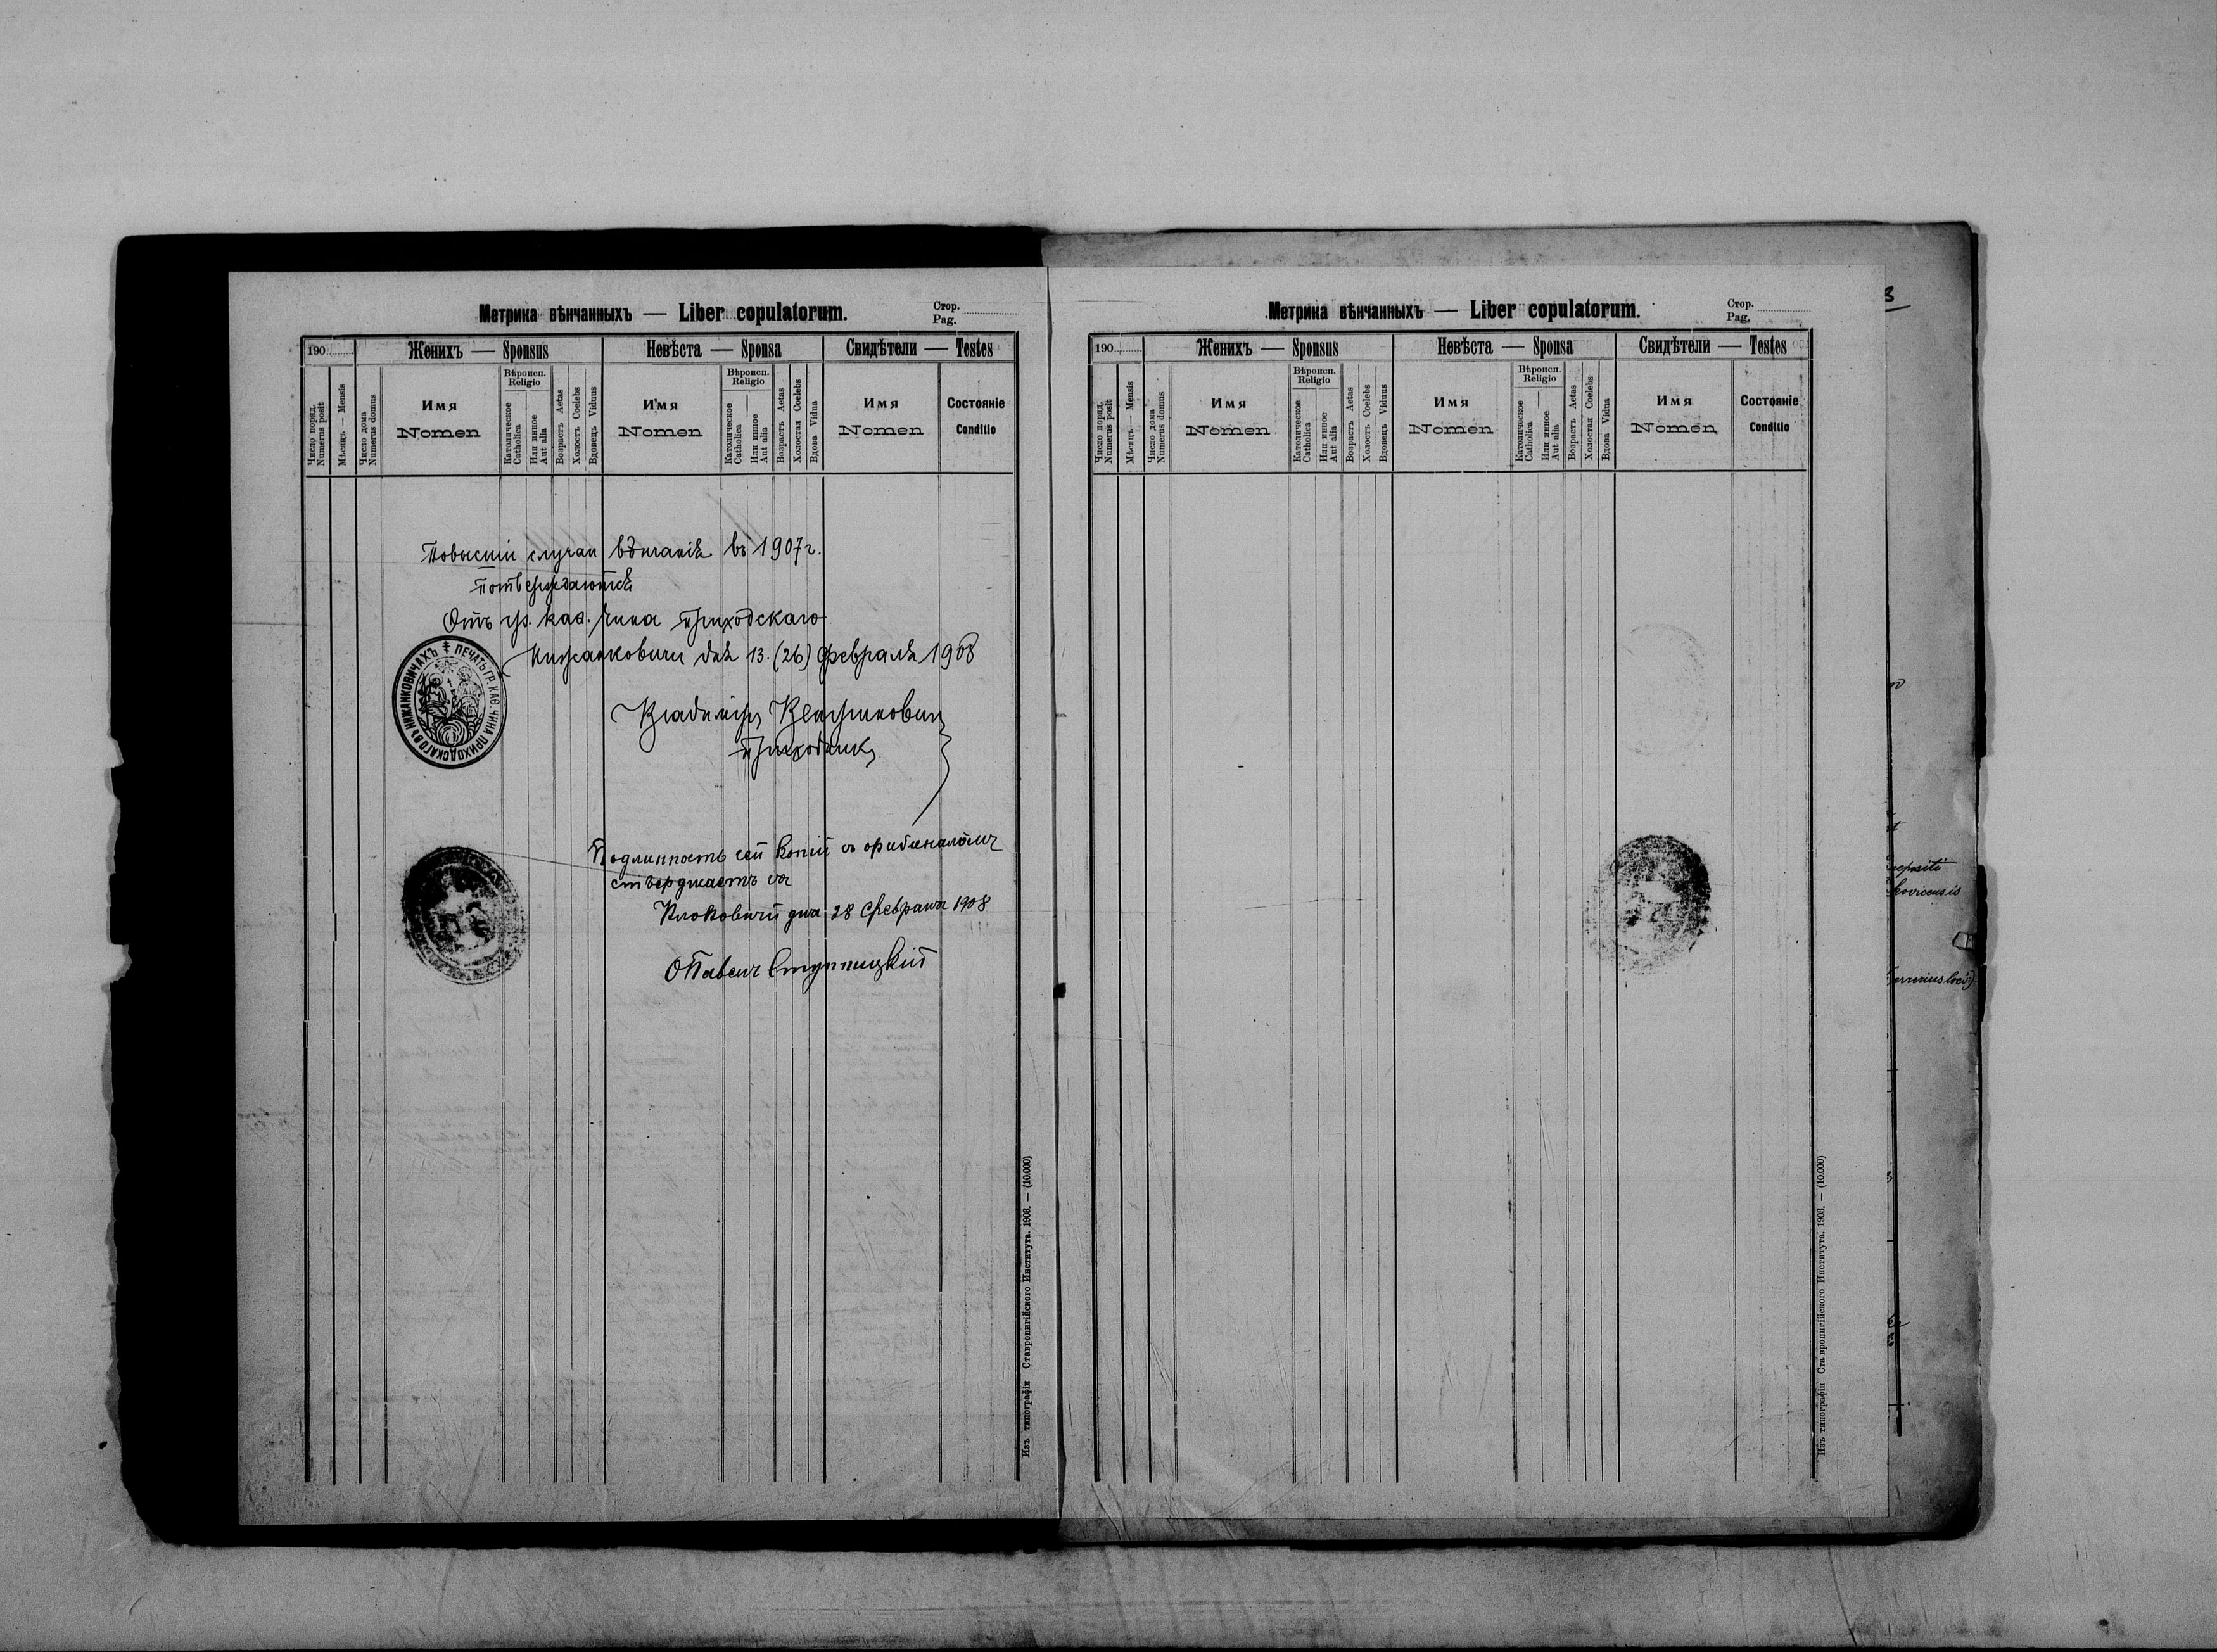 Метрика вѣнчанныхъ — Liber copulatorum.
Стор.
Pag.
190
Женихъ — Sponsus
Невѣста — Sponsa
Свидѣтели — Testes
Число поряд.
Numerus posit
Мѣсяцъ — Mensis
Число дома
Numerus domus
Имя
Nomen
Вѣроисп.
Religio
Католическое
Catholica
Или инное
Aut alia
Возрастъ Aetas
Холостъ Coelebs
Вдовецъ Viduus
Имя
Nomen
Вѣроисп.
Religio
Католическое
Catholica
Или инное
Aut alia
Возрастъ Aetas
Холостая Coelebs
Вдова Vidua
Имя
Nomen
Состояніе
Conditio
Повысшіи случаи вѣнчанія въ 1907 г.
потверждаются
Отъ гр. каѳ. чина приходскаго
Нижанковичи дня 13. (26) Февраля 1908
ПЕЧАТЬ ГР. КАѲ. ЧИНА ПРИХОДСКАГО ВЪ НИЖАНКОВИЧАХЪ
Владиміръ
приходникъ
Подлинность сей копіи съ оригиналомъ
стверджаетъ ся
Клоковичи дня 28 Февраля 1908
О Павелъ Ступницкій
Изъ типографіи Ставропигійского Института. 1908. — (10.000)
Метрика вѣнчанныхъ — Liber copulatorum.
Стор.
Pag.
190
Женихъ — Sponsus
Невѣста — Sponsa
Свидѣтели — Testes
Число поряд.
Numerus posit
Мѣсяцъ — Mensis
Число дома
Numerus domus
Имя
Nomen
Вѣроисп.
Religio
Католическое
Catholica
Или инное
Aut alia
Возрастъ Aetas
Холостъ Coelebs
Вдовецъ Viduus
Имя
Nomen
Вѣроисп.
Religio
Католическое
Catholica
Или инное
Aut alia
Возрастъ Aetas
Холостая Coelebs
Вдова Vidua
Имя
Nomen
Состояніе
Conditio
Изъ типографіи Ставропигійского Института. 1908. — (10.000)
3